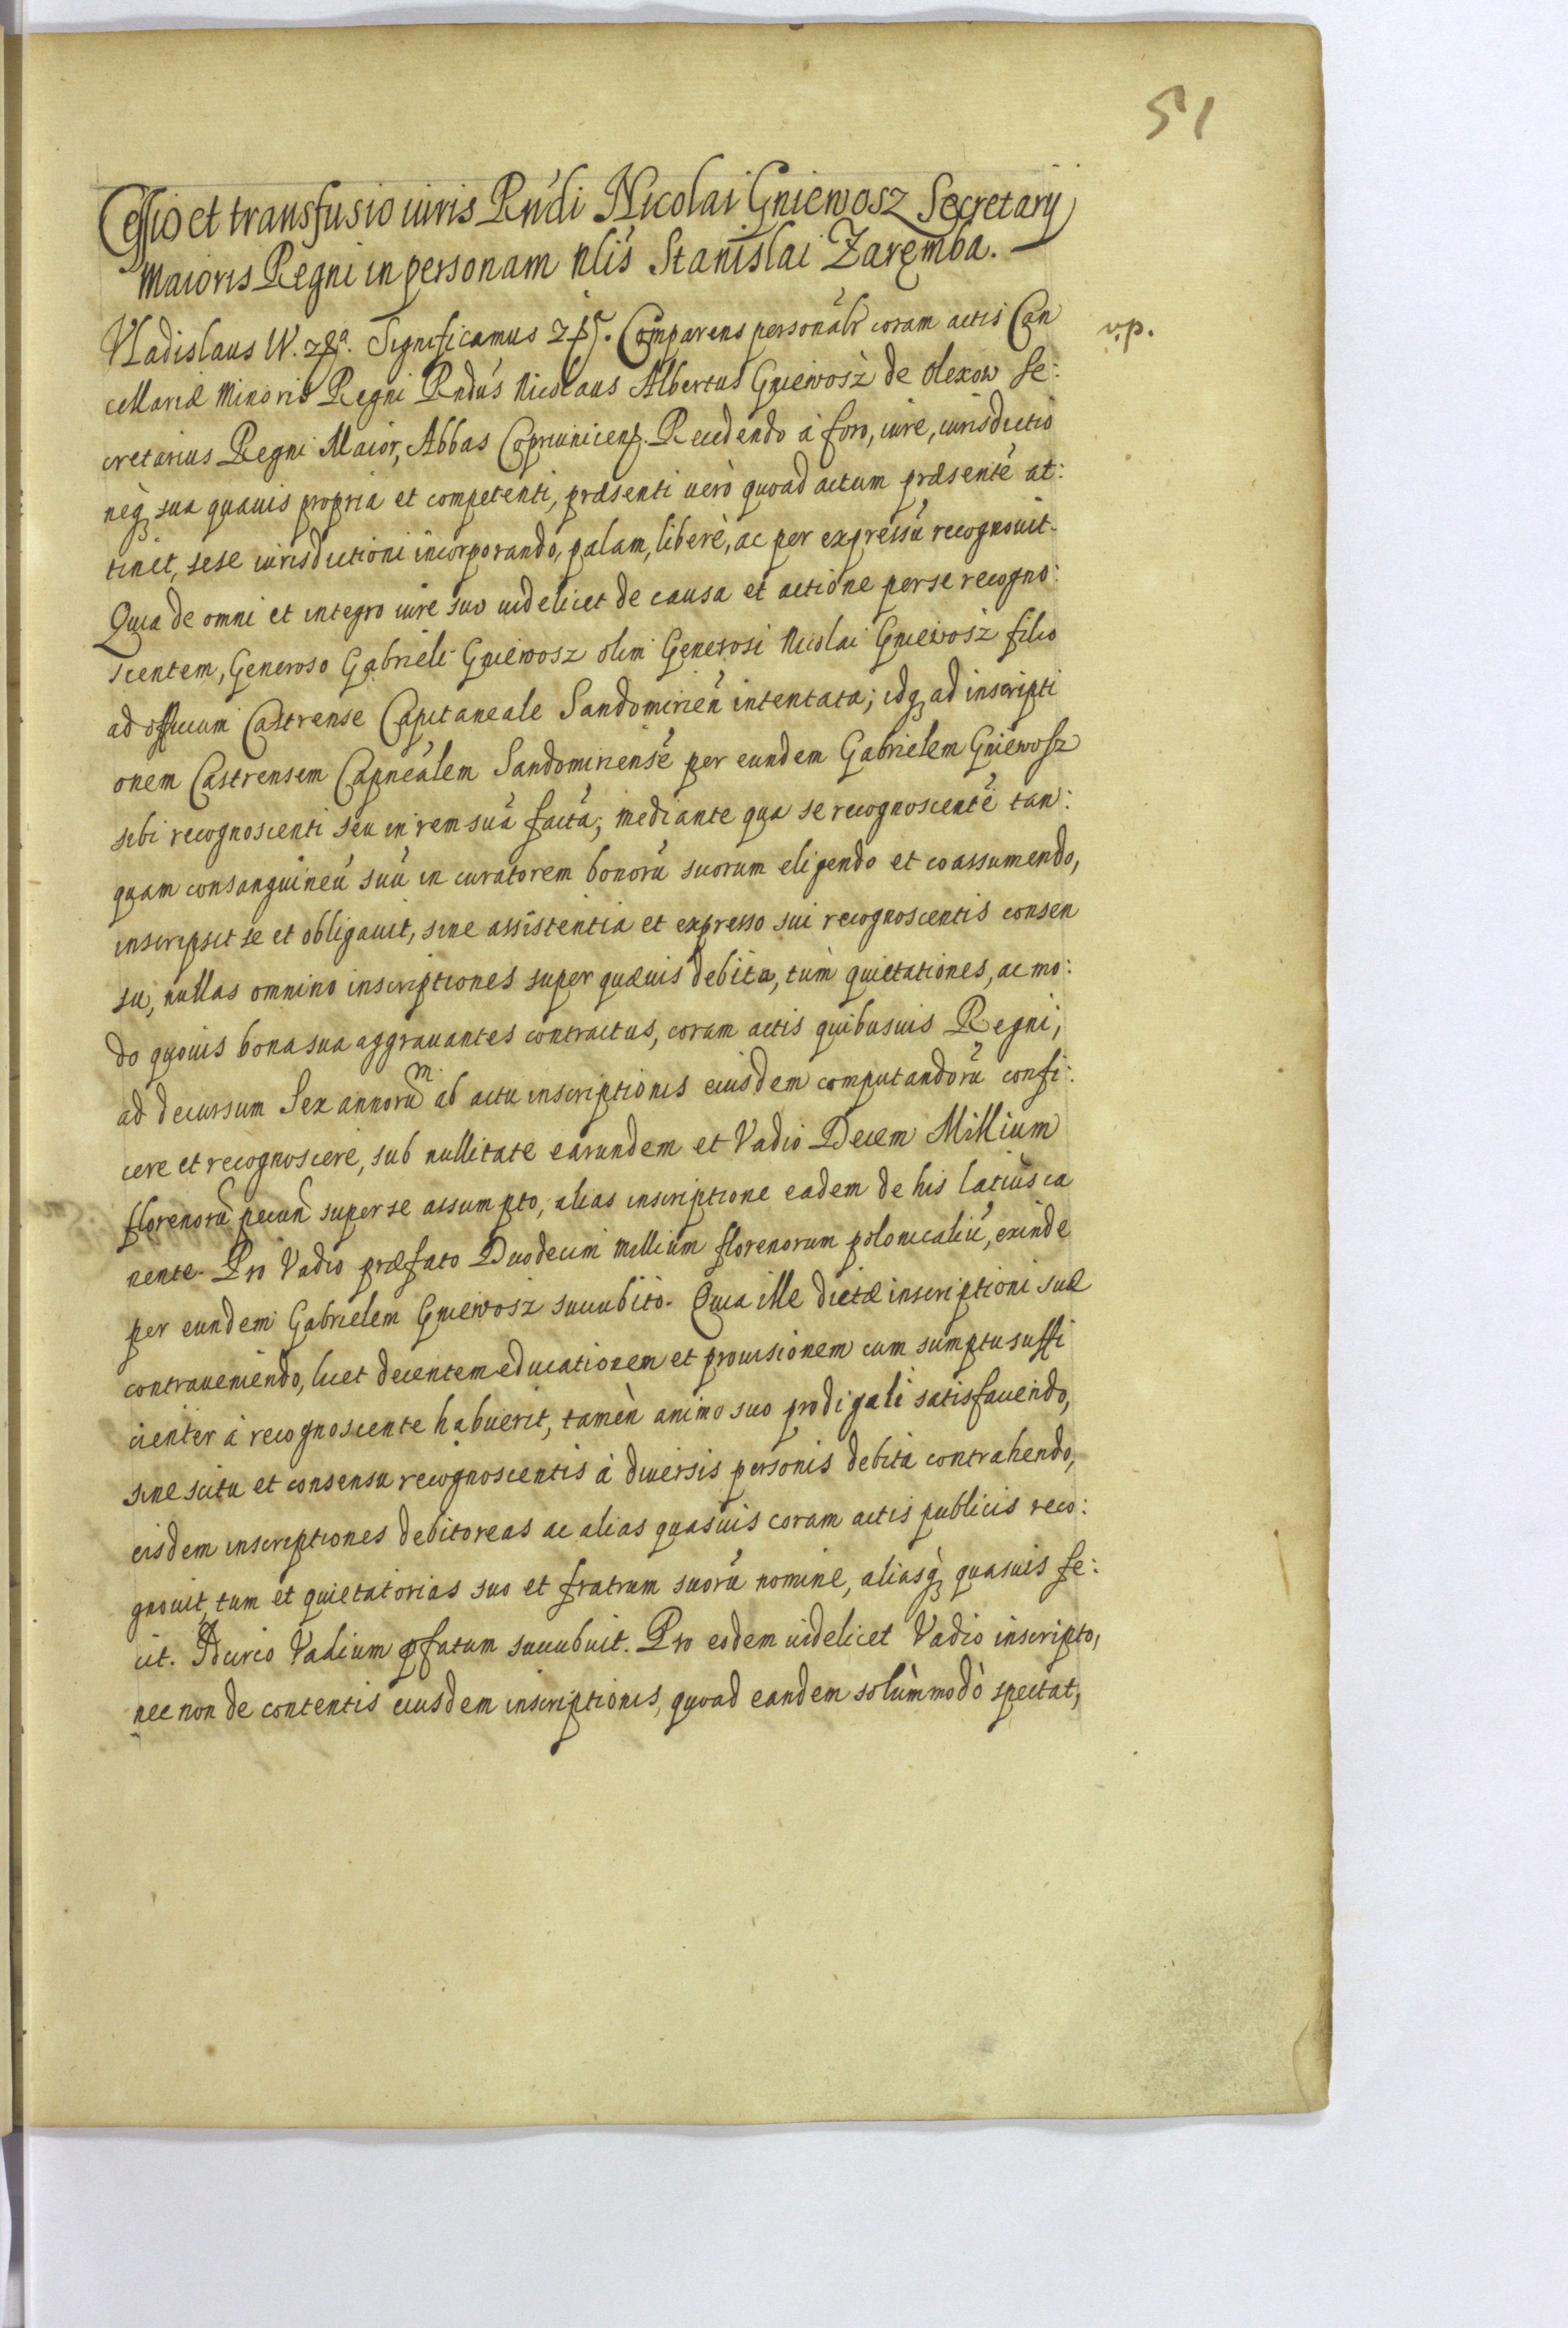 51
Cessio et transfusio iuris Rndi Nicolai Gniewosz Secretarij
Maioris Regni in personam Nlis Stanislai Zaręmba.
Vladislaus IV. Significamus Comparens personalr coram actis Can
v.p.
cellariæ Minoris Regni Rndus Nicolaus Albertus Gniewosz de Olexow Se:
cretarius Regni Maior, Abbas Coprivnicens. Recedendo à foro, iure, iurisdictio
neq sua quauis propria et competenti, præsenti uerò quoad actum præsente at:
tinet, sese iurisdictioni incorporando, palam, liberè, ac per expressu recognouit.
Quia de omni et integro iure suo uidelicet de causa et actione per se recogno:
scentem, Generoso Gabrieli Gniewosz olim Generosi Nicolai Gniewosz filio
ad officium Castrense Capitaneale Sandomirien intentata; idq ad inscripti
onem Castrensem Capnealem Sandomiriense per eundem Gabrielem Gniewosz
sibi recognoscenti seu in rem suā factā; mediante qua se recognoscentē tan:
quam consanguineū suū in curatorem bonorū suorum eligendo et coassumendo,
inscripsit se et obligauit, sine assistentia et expresso sui recognoscentis consen
su, nullas omnino inscriptiones super quæuis debita, tùm quietationes, ac mo:
do quouis bona sua aggrauantes contractus, coram actis quibusuis Regni,
ad decursum Sex annorum ab actu inscriptionis eiusdem computandorū confi:
cere et recognoscere, sub nullitate earundem et Vadio Decem Millium
florenorū pecun super se assumpto, alias inscriptione eadem de his latiùs ca
nente. Pro Vadio præfato Duodecim millium florenorum polonicaliū, exinde
per eundem Gabrielem Gniewosz succubito. Quia ille dictæ inscriptioni suæ
contraueniendo, licet decentem educationem et prouisionem cum sumptu suffi
cienter à recognoscente habuerit, tamèn animo suo prodigali satisfaciendo,
sine scitu et consensu recognoscentis à diuersis personis debita contrahendo,
eisdem inscriptiones debitoreas ac alias quasuis coram actis publicis reco:
gnouit, tum et quietatorias suo et fratrum suorū nomine, aliasq quasuis fe:
cit. Idcirco Vadium pfatum succubuit. Pro eodem uidelicet Vadio inscripto,
nec non de contentis eiusdem inscriptionis, quoad eandem solùmmodò spectat,